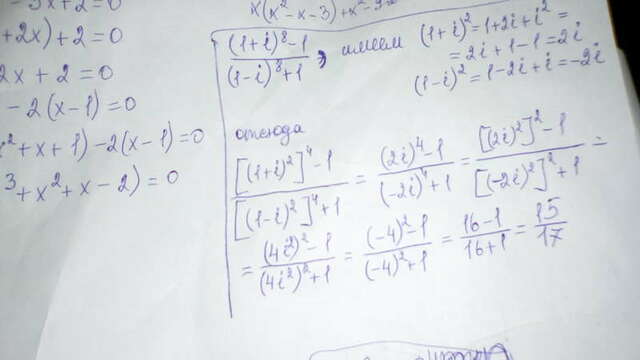 - 3x + 2 = 0
+ 2x) + 2 = 0
2x + 2 = 0
- 2(x-1) = 0
x² + x + 1) - 2(x-1) = 0
³ + x² + x - 2) = 0
x(x² - x - 3) + x² - 
(1+i)⁸ - 1 / (1-i)⁸ + 1, имеем (1+i)² = 1 + 2i + i² =
= 2i + 1 - 1 = 2i
(1-i)² = 1 - 2i + i = -2i
отсюда
[(1+i)²]⁴ - 1 / [(1-i)²]⁴ + 1 = (2i)⁴ - 1 / (-2i)⁴ + 1 = [(2i)²]² - 1 / [(-2i)²]² + 1 =
= (4i²)² - 1 / (4i²)² + 1 = (-4)² - 1 / (-4)² + 1 = 16 - 1 / 16 + 1 = 15 / 17